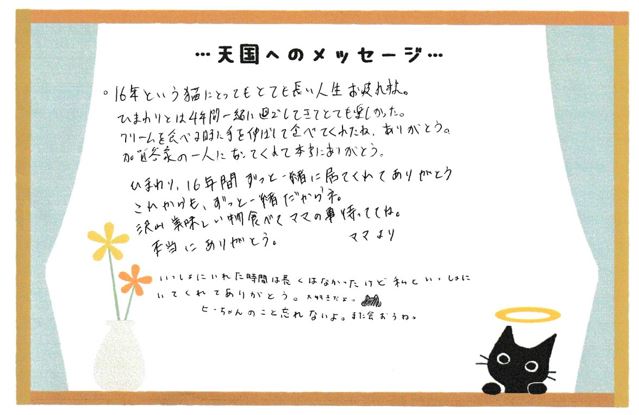 …天国へのメッセージ…
。16年という猫にとってもとても長い人生お疲れ様。
ひまわりとは4年間一緒に過ごしてきてとても楽しかった。
クリームを食べる時に手を伸ばして食べてくれたね、ありがとう。
家の一人になってくれて本当にありがとう。
ひまわり、16年間ずっと一緒に居てくれてありがとう
これからも、ずっと一緒だからネ。
沢山美味しい物食べてママの事待っててね。
本当にありがとう。 ママより
いっしょにいれた時間は長くはなかったけど私といっしょに
いてくれてありがとう。大好きだよ。
ヒーちゃんのこと忘れないよ。また会おうね。